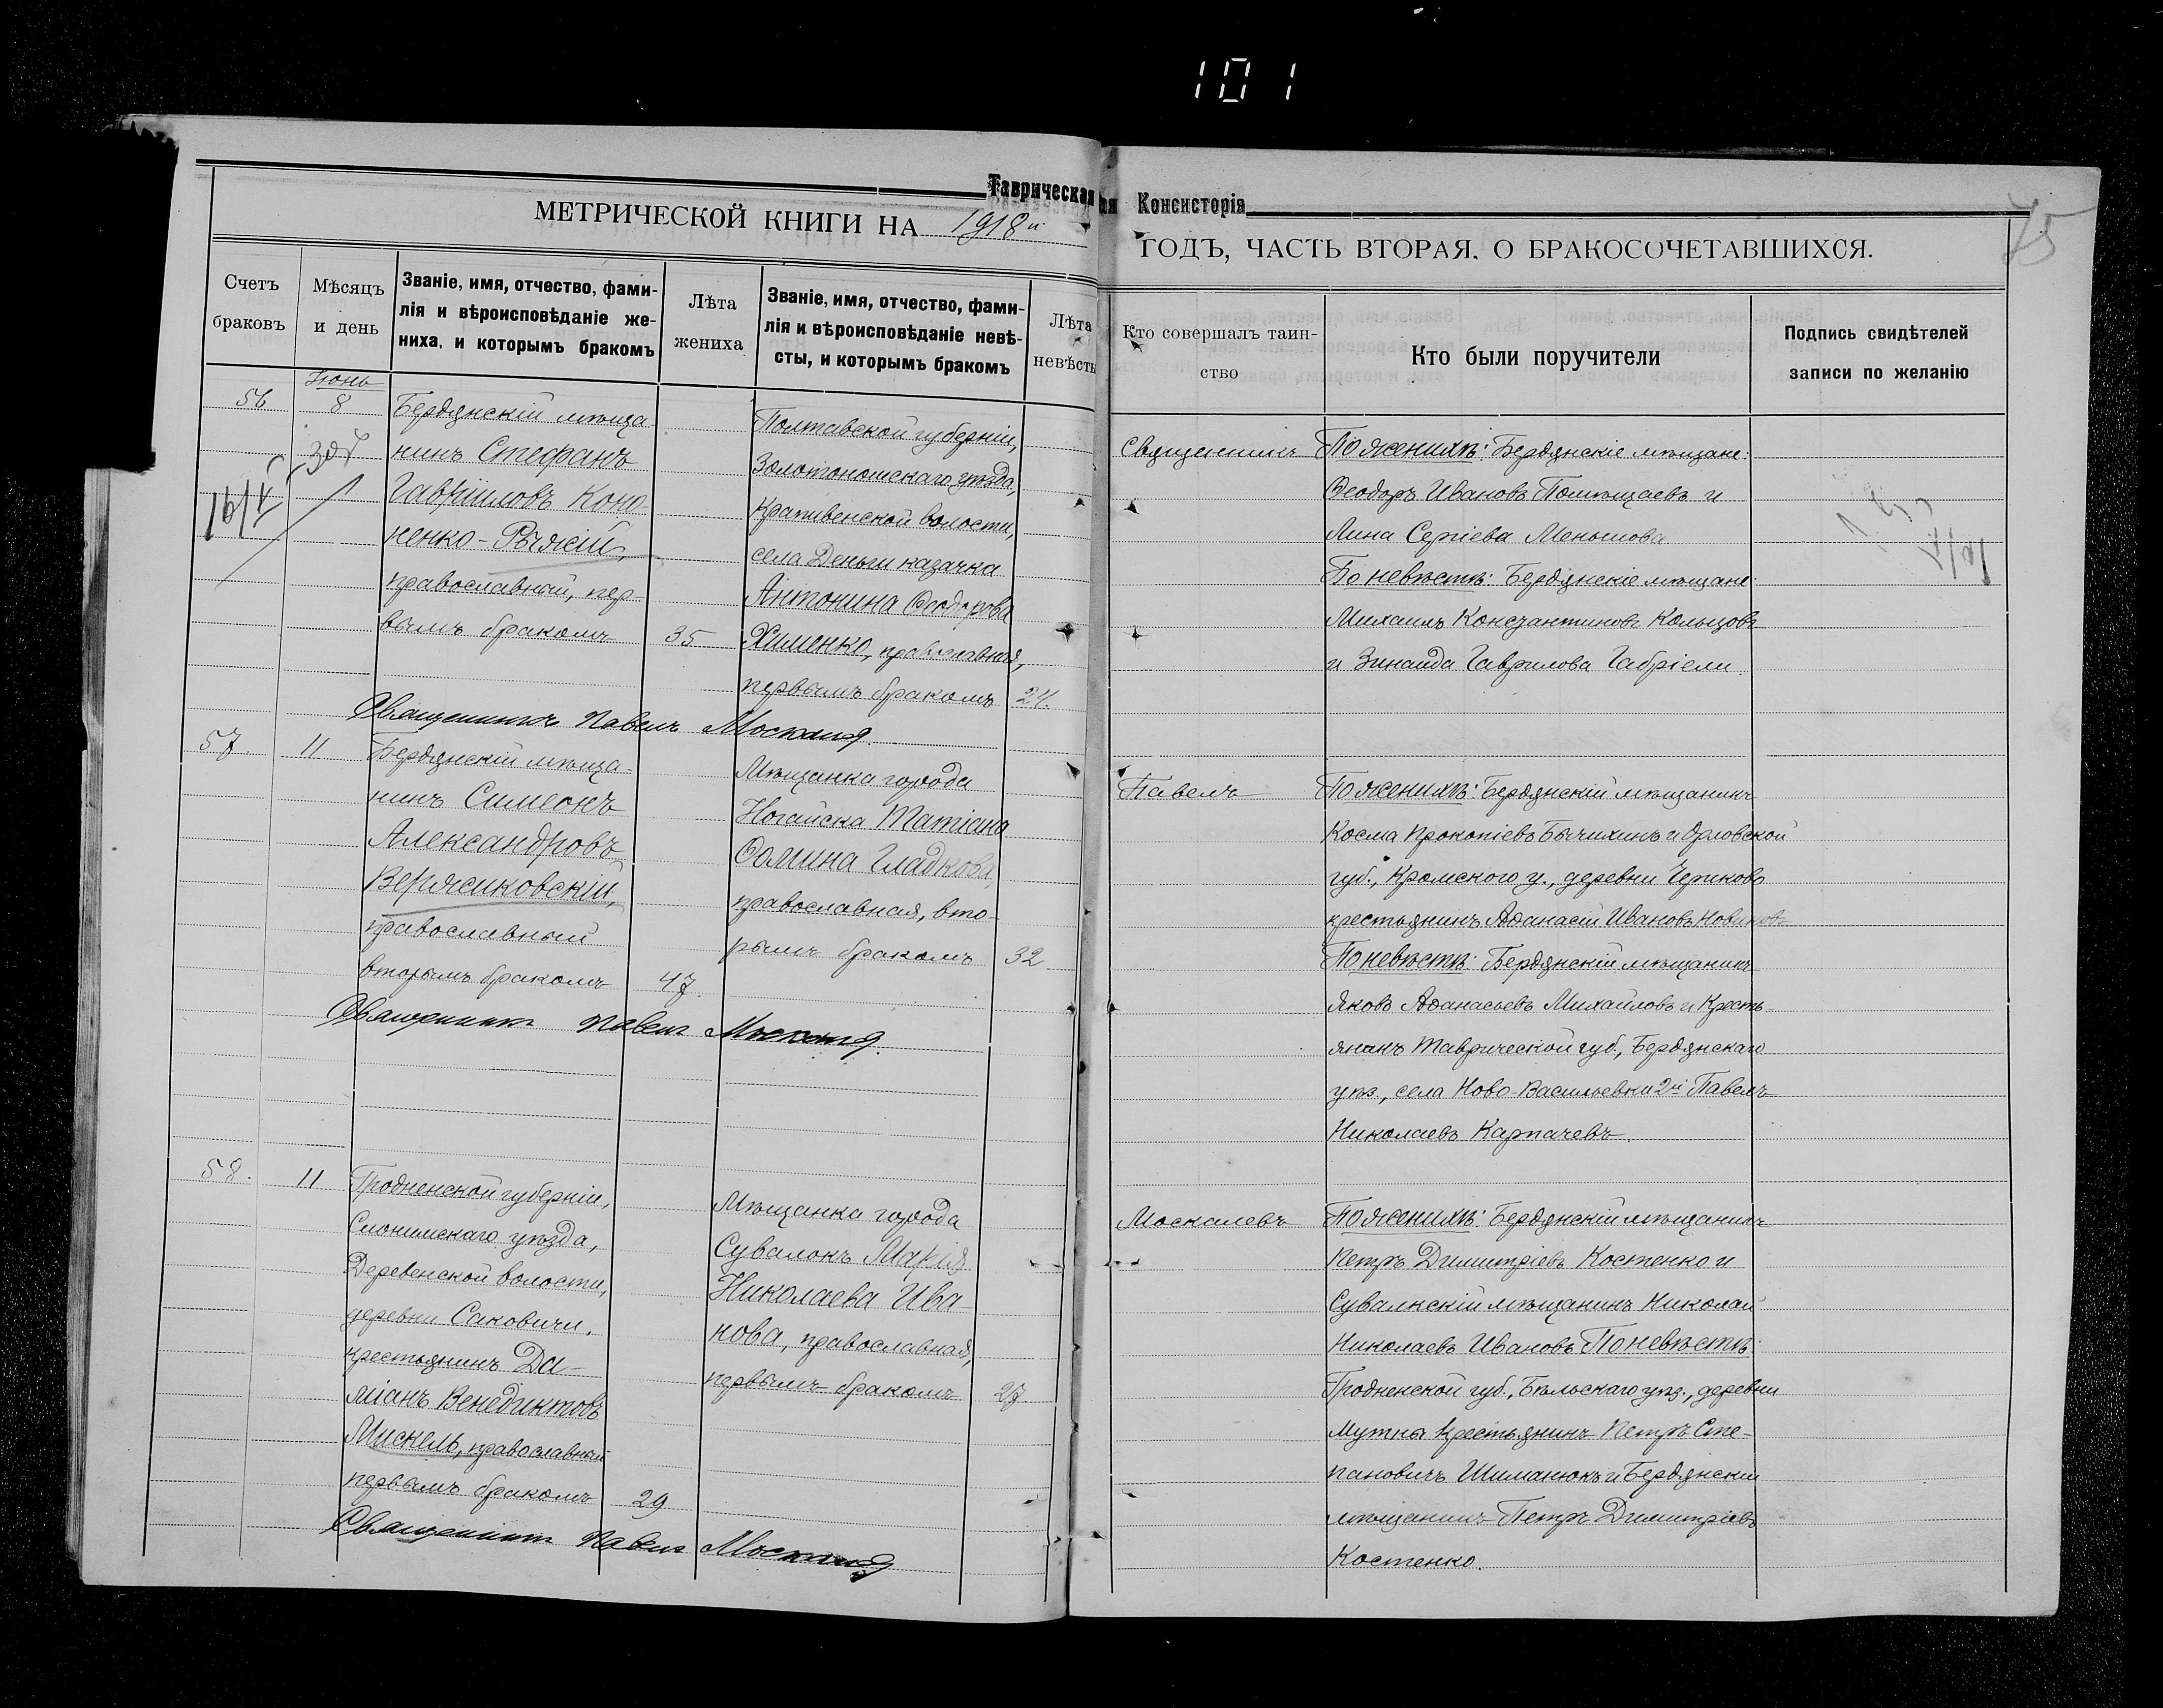 101
Таврическая Консисторія
75
МЕТРИЧЕСКОЙ КНИГИ НА 1918й
ГОДЪ, ЧАСТЬ ВТОРАЯ, О БРАКОСОЧЕТАВШИХСЯ.
Счетъ
браковъ
Мѣсяцъ
и день
Званіе, имя, отчество, фами-
лія и вѣроисповѣданіе же-
ниха, и которымъ бракомъ
Лѣта
жениха
Званіе, имя, отчество, фами-
лія и вѣроисповѣданіе невѣ-
сты, и которымъ бракомъ
Лѣта
невѣсты
Кто совершалъ таин-
ство
Кто были поручители
Подпись свидѣтелей
записи по желанію
56
Іюнь
8
Бердянскій мѣща
нинъ Стефанъ
Гавріиловъ Коно-
ненко-Рыжій,
православный, пер
вымъ бракомъ
35
Полтавской губерніи,
Золотоношскаго уѣзда,
Крапивенской волости,
села Деньги казачка
Антонина Ѳеодорова
Хименко, православная,
первымъ бракомъ
24.
Священникъ Павелъ
Священникъ
По женихѣ: Бердянскіе мѣщане:
Ѳеодоръ Ивановъ Помѣщаевъ и
Анна Сергіева Меньшова
По невѣстѣ: Бердянскіе мѣщане
Михаилъ Константиновъ Кольцовъ
и Зинаида Гаврилова Габріели
57.
11
Бердянскій мѣща-
нинъ Симеонъ
Александровъ
Вержиковскій,
православный
вторымъ бракомъ
47.
Мѣщанка города
Ногайска Татіана
Ѳомина Гладкова,
православная, вто-
рымъ бракомъ
32
Священникъ Павелъ
Павелъ
По женихѣ: Бердянскій мѣщанинъ
Косма Прокопіевъ Бычихинъ и Орловской
губ., Кромского у., деревни Черикова
крестьянинъ Аѳанасій Ивановъ Новиковъ
По невѣстѣ: Бердянскій мѣщанинъ
Яковъ Аѳанасьевъ Михайловъ и Кресть-
янинъ Таврической губ., Бердянскаго
уѣз., села Ново-Васильевки 2й Павелъ
Николаевъ Карпачевъ.
58.
11
Гродненской губерніи,
Слонимскаго уѣзда,
Деревенской волости,
деревни Саковичи,
крестьянинъ Да-
міанъ Венедиктовъ
Мискель, православный
первымъ бракомъ
29
Мѣщанка города
Сувалокъ Марія
Николаева Ива-
нова, православная,
первымъ бракомъ
27.
Священникъ Павелъ
Москалевъ
По женихѣ: Бердянскій мѣщанинъ
Петръ Димитріевъ Костенко и
Сувалкскій мѣщанинъ Николай
Николаевъ Ивановъ По невѣстѣ:
Гродненской губ., Бѣльскаго уѣз., деревни
Мутна крестьянинъ Петръ Сте-
пановичъ Шиманюкъ и Бердянскій
мѣщанинъ Петръ Димитріевъ
Костенко.